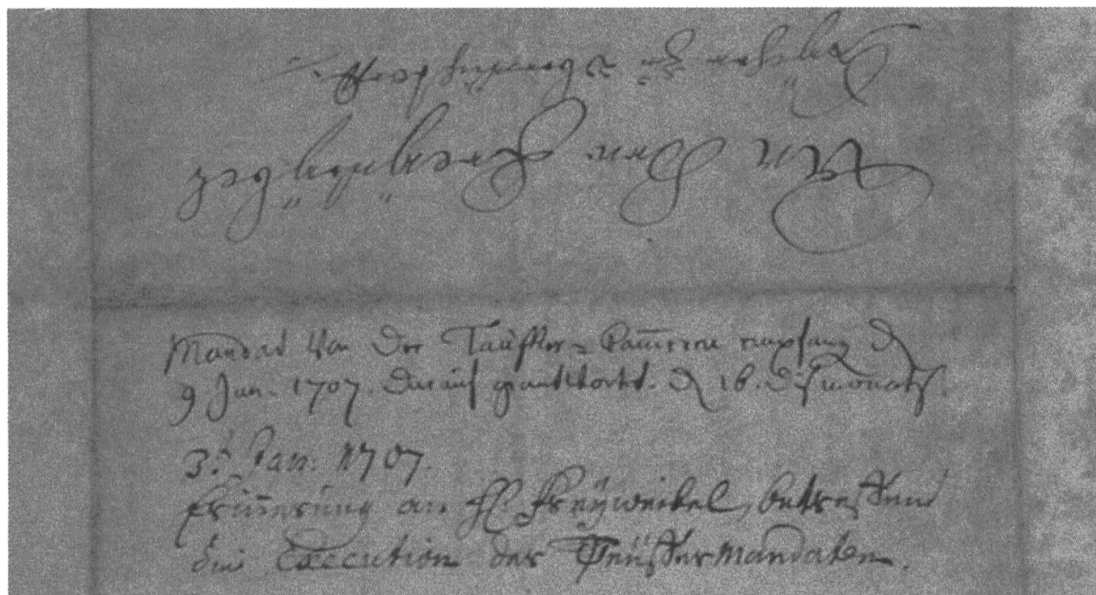 An Herrn Freyweibel
zu
Mandat Von Der Taüffer=Cam̄eren empfang D
9 Jan. 1707. Darauf geantwortet. D 16. diß monats.
3.t Jan. 1707.
Erin̄erung an Hl Freyweibel, betreffend
die Execution der Teüffer Mandaten.